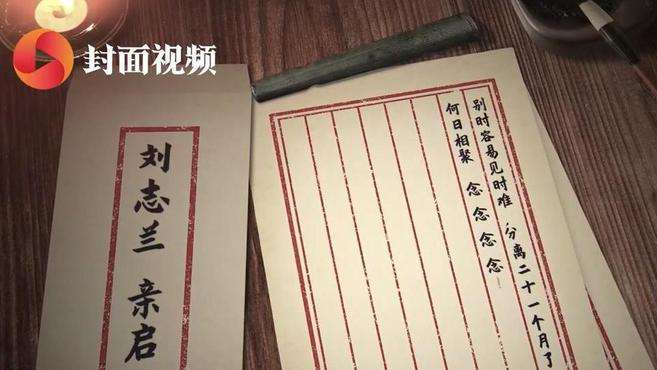 封面视频
刘志兰 亲启
别时容易见时难 分离二十一个月了
何日相聚 念念念念